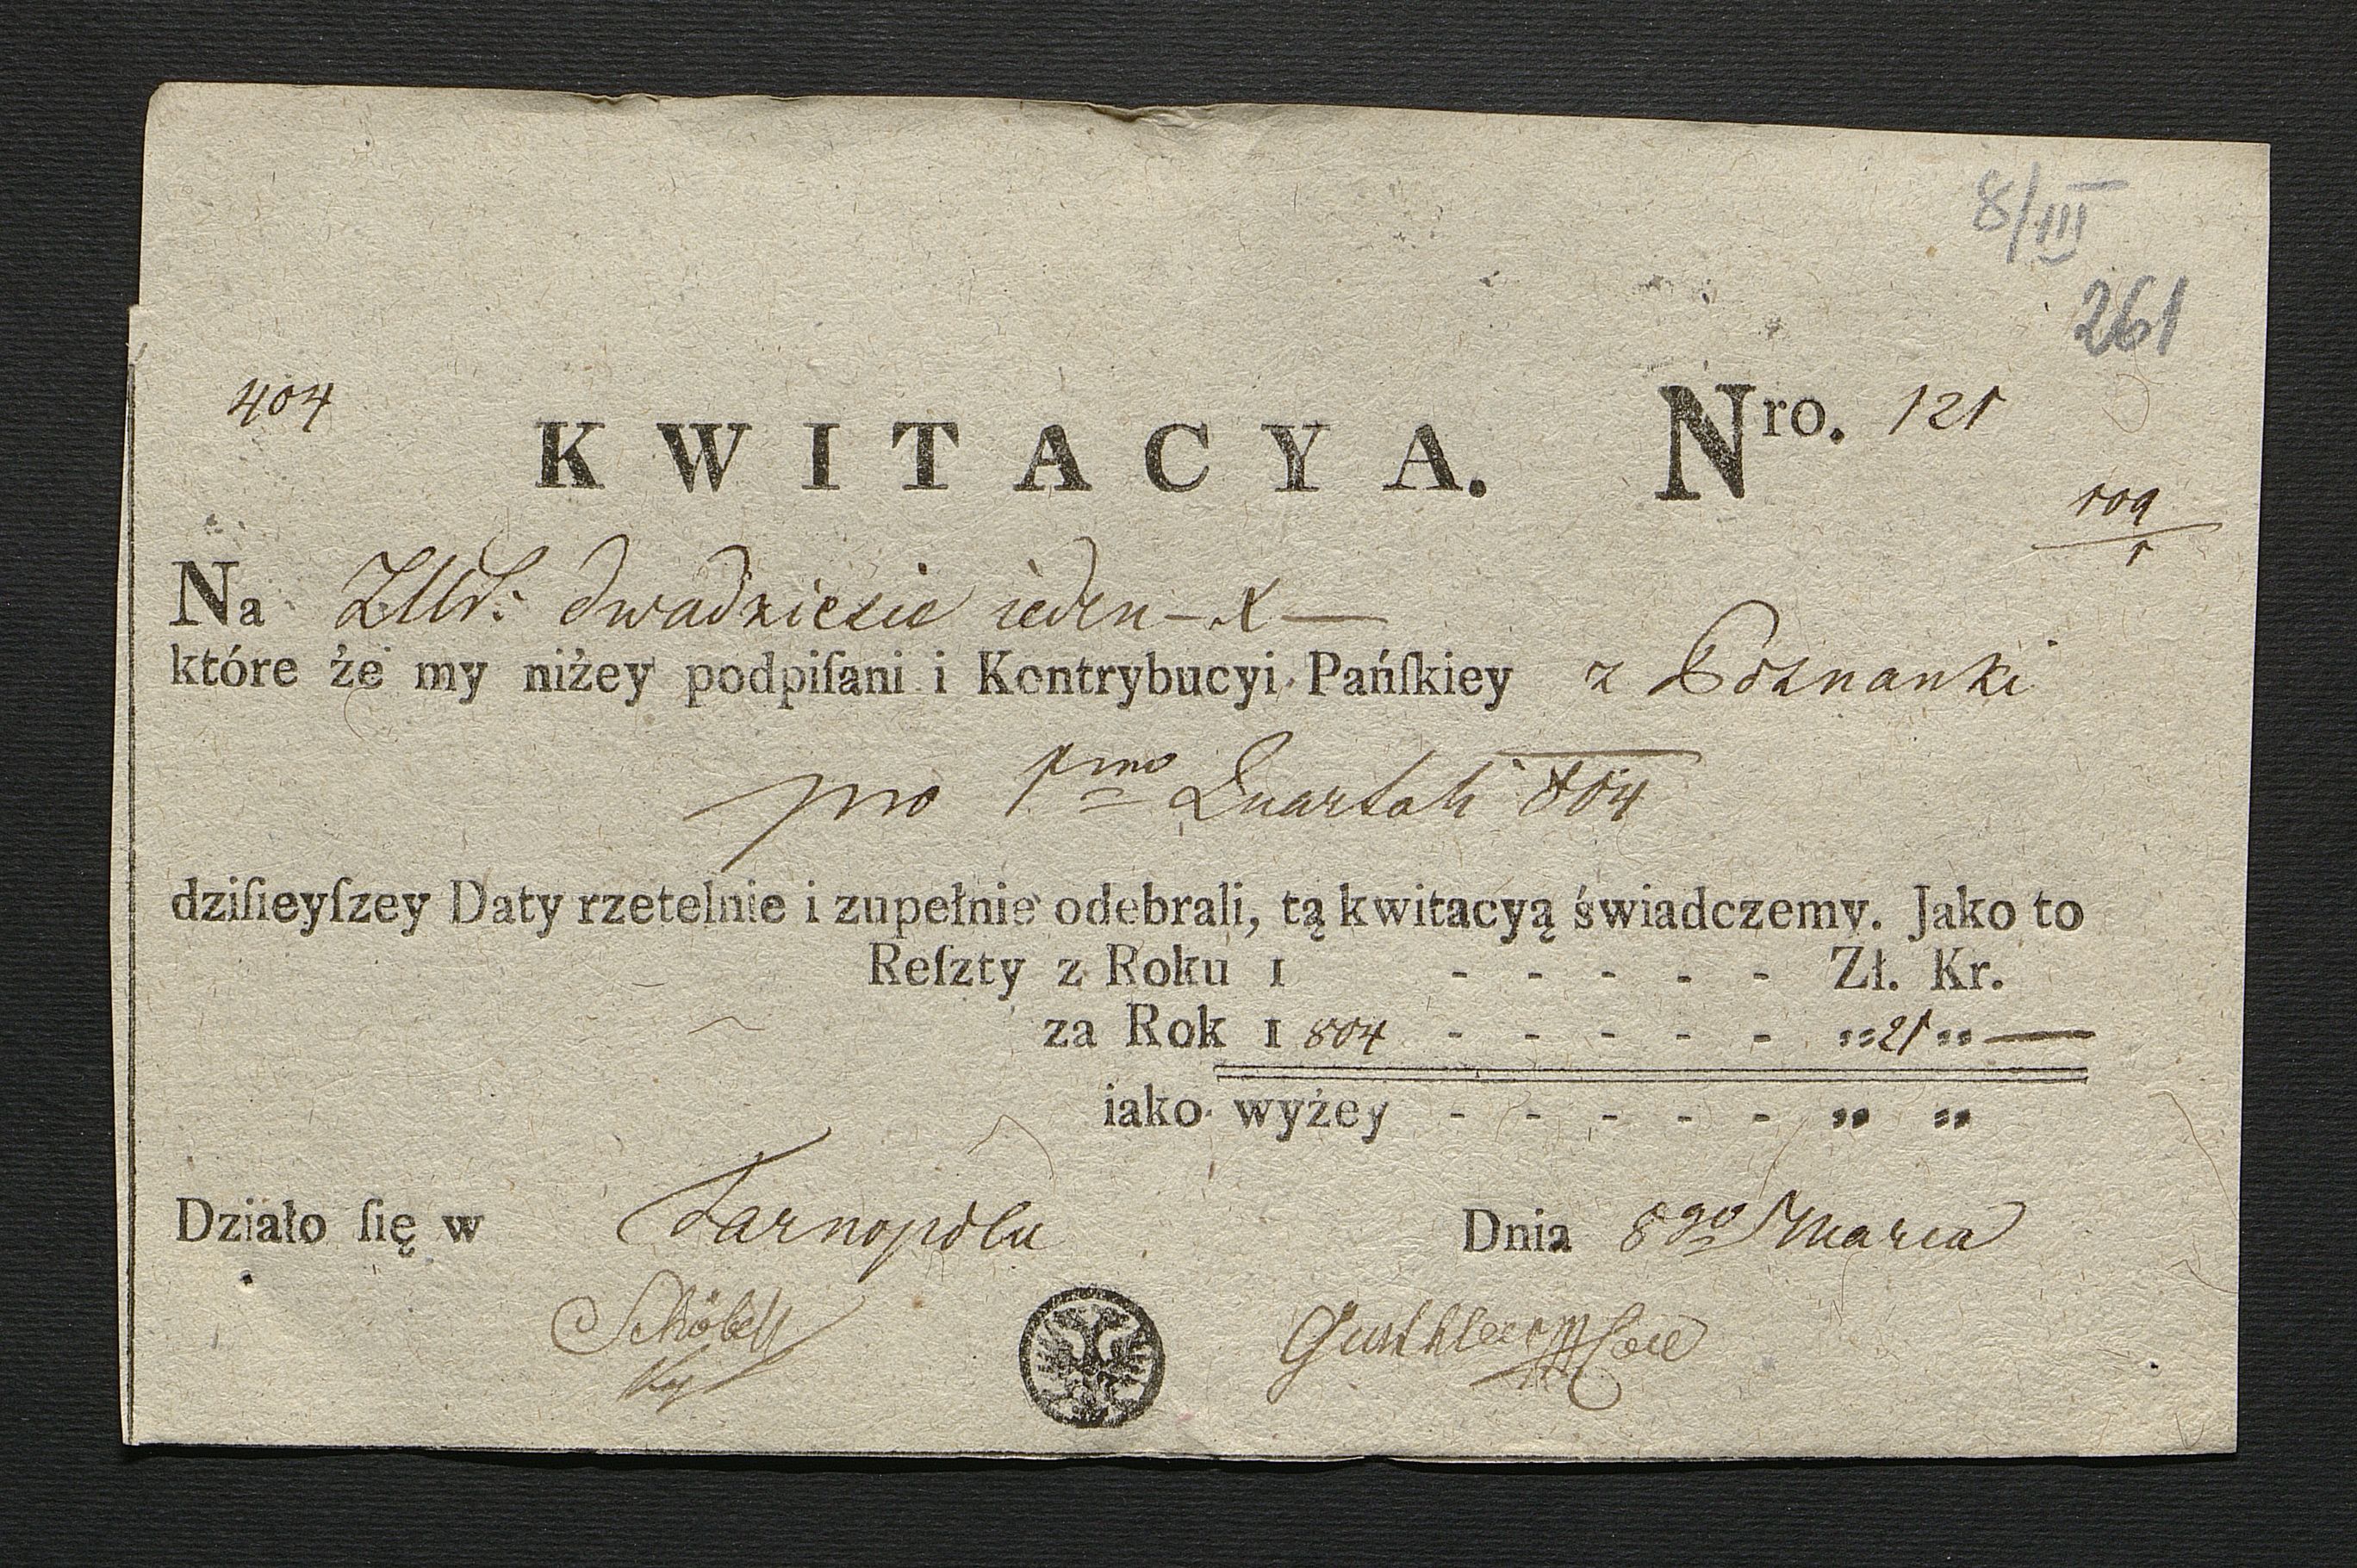 8/III
261
404
KWITACYA. Nro. 121
109
1
Na ZłłR: dwadziescie ieden — x —
które że my niżey podpiſani i Kontrybucyi Pańſkiey z Poznanki
pro 1mo Quartali 804
dziſieyſzey Daty rzetelnie i zupełnie odebrali, tą kwitacyą świadczemy. Jako to
Reſzty z Roku 1 - - - - - Zł. Kr.
za Rok 1804 - - - - - „ 21 „ —
iako wyżey - - - - - „ „
Działo ſię w Tarnopolu Dnia 8go Marca
Schöbell